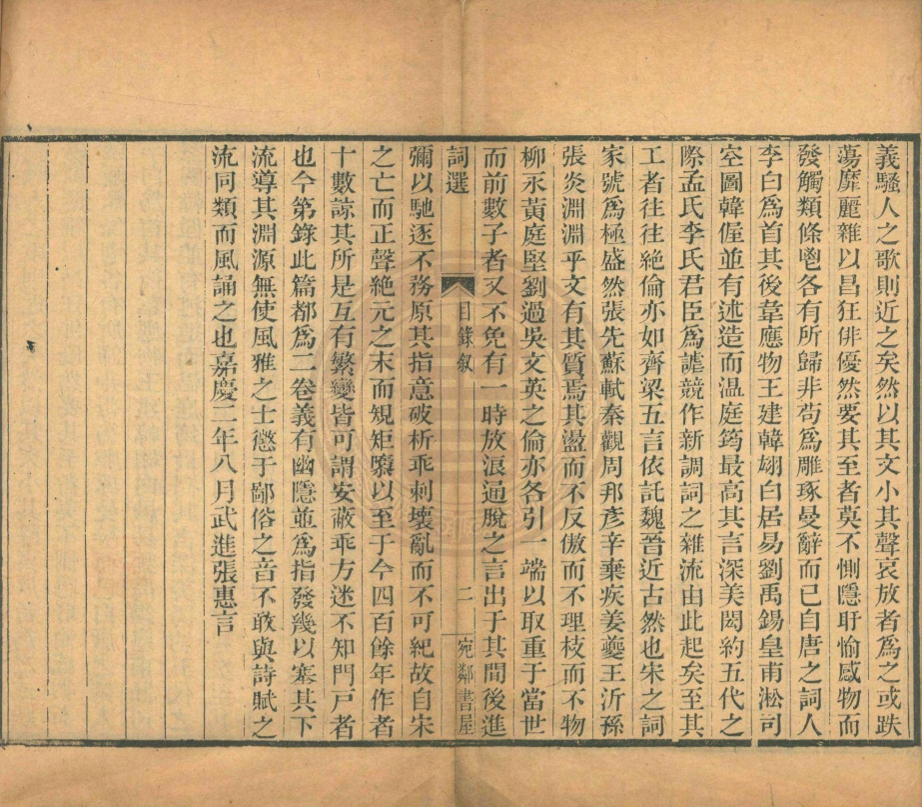 義騷人之歌則近之矣然以其文小其聲哀放者爲之或跌
蕩靡麗雜以昌狂俳優然要其至者莫不惻隱盱愉感物而
發觸類條鬯各有所歸非苟爲雕琢曼辭而已自唐之詞人
李白爲首其後韋應物王建韓翃白居易劉禹錫皇甫淞司
空圖韓偓並有述造而温庭筠最高其言深美閎約五代之
際孟氏李氏君臣爲謔競作新調詞之雜流由此起矣至其
工者往往絕倫亦如齊梁五言依託魏晉近古然也宋之詞
家號爲極盛然張先蘇軾秦觀周邦彥辛棄疾姜夔王沂孫
張炎淵淵乎文有其質焉其盪而不反傲而不理枝而不物
柳永黃庭堅劉過吳文英之倫亦各引一端以取重于當世
而前數子者又不免有一時放浪通脫之言出于其間後進
詞選 目錄敘 二 宛鄰書屋
彌以馳逐不務原其指意破析乖刺壞亂而不可紀故自宋
之亡而正聲絕元之末而規矩隳以至于今四百餘年作者
十數諒其所是互有繁變皆可謂安蔽乖方迷不知門戸者
也今第錄此篇都爲二卷義有幽隱並爲指發幾以塞其下
流導其淵源無使風雅之士懲于鄙俗之音不敢與詩賦之
流同類而風誦之也嘉慶二年八月武進張惠言